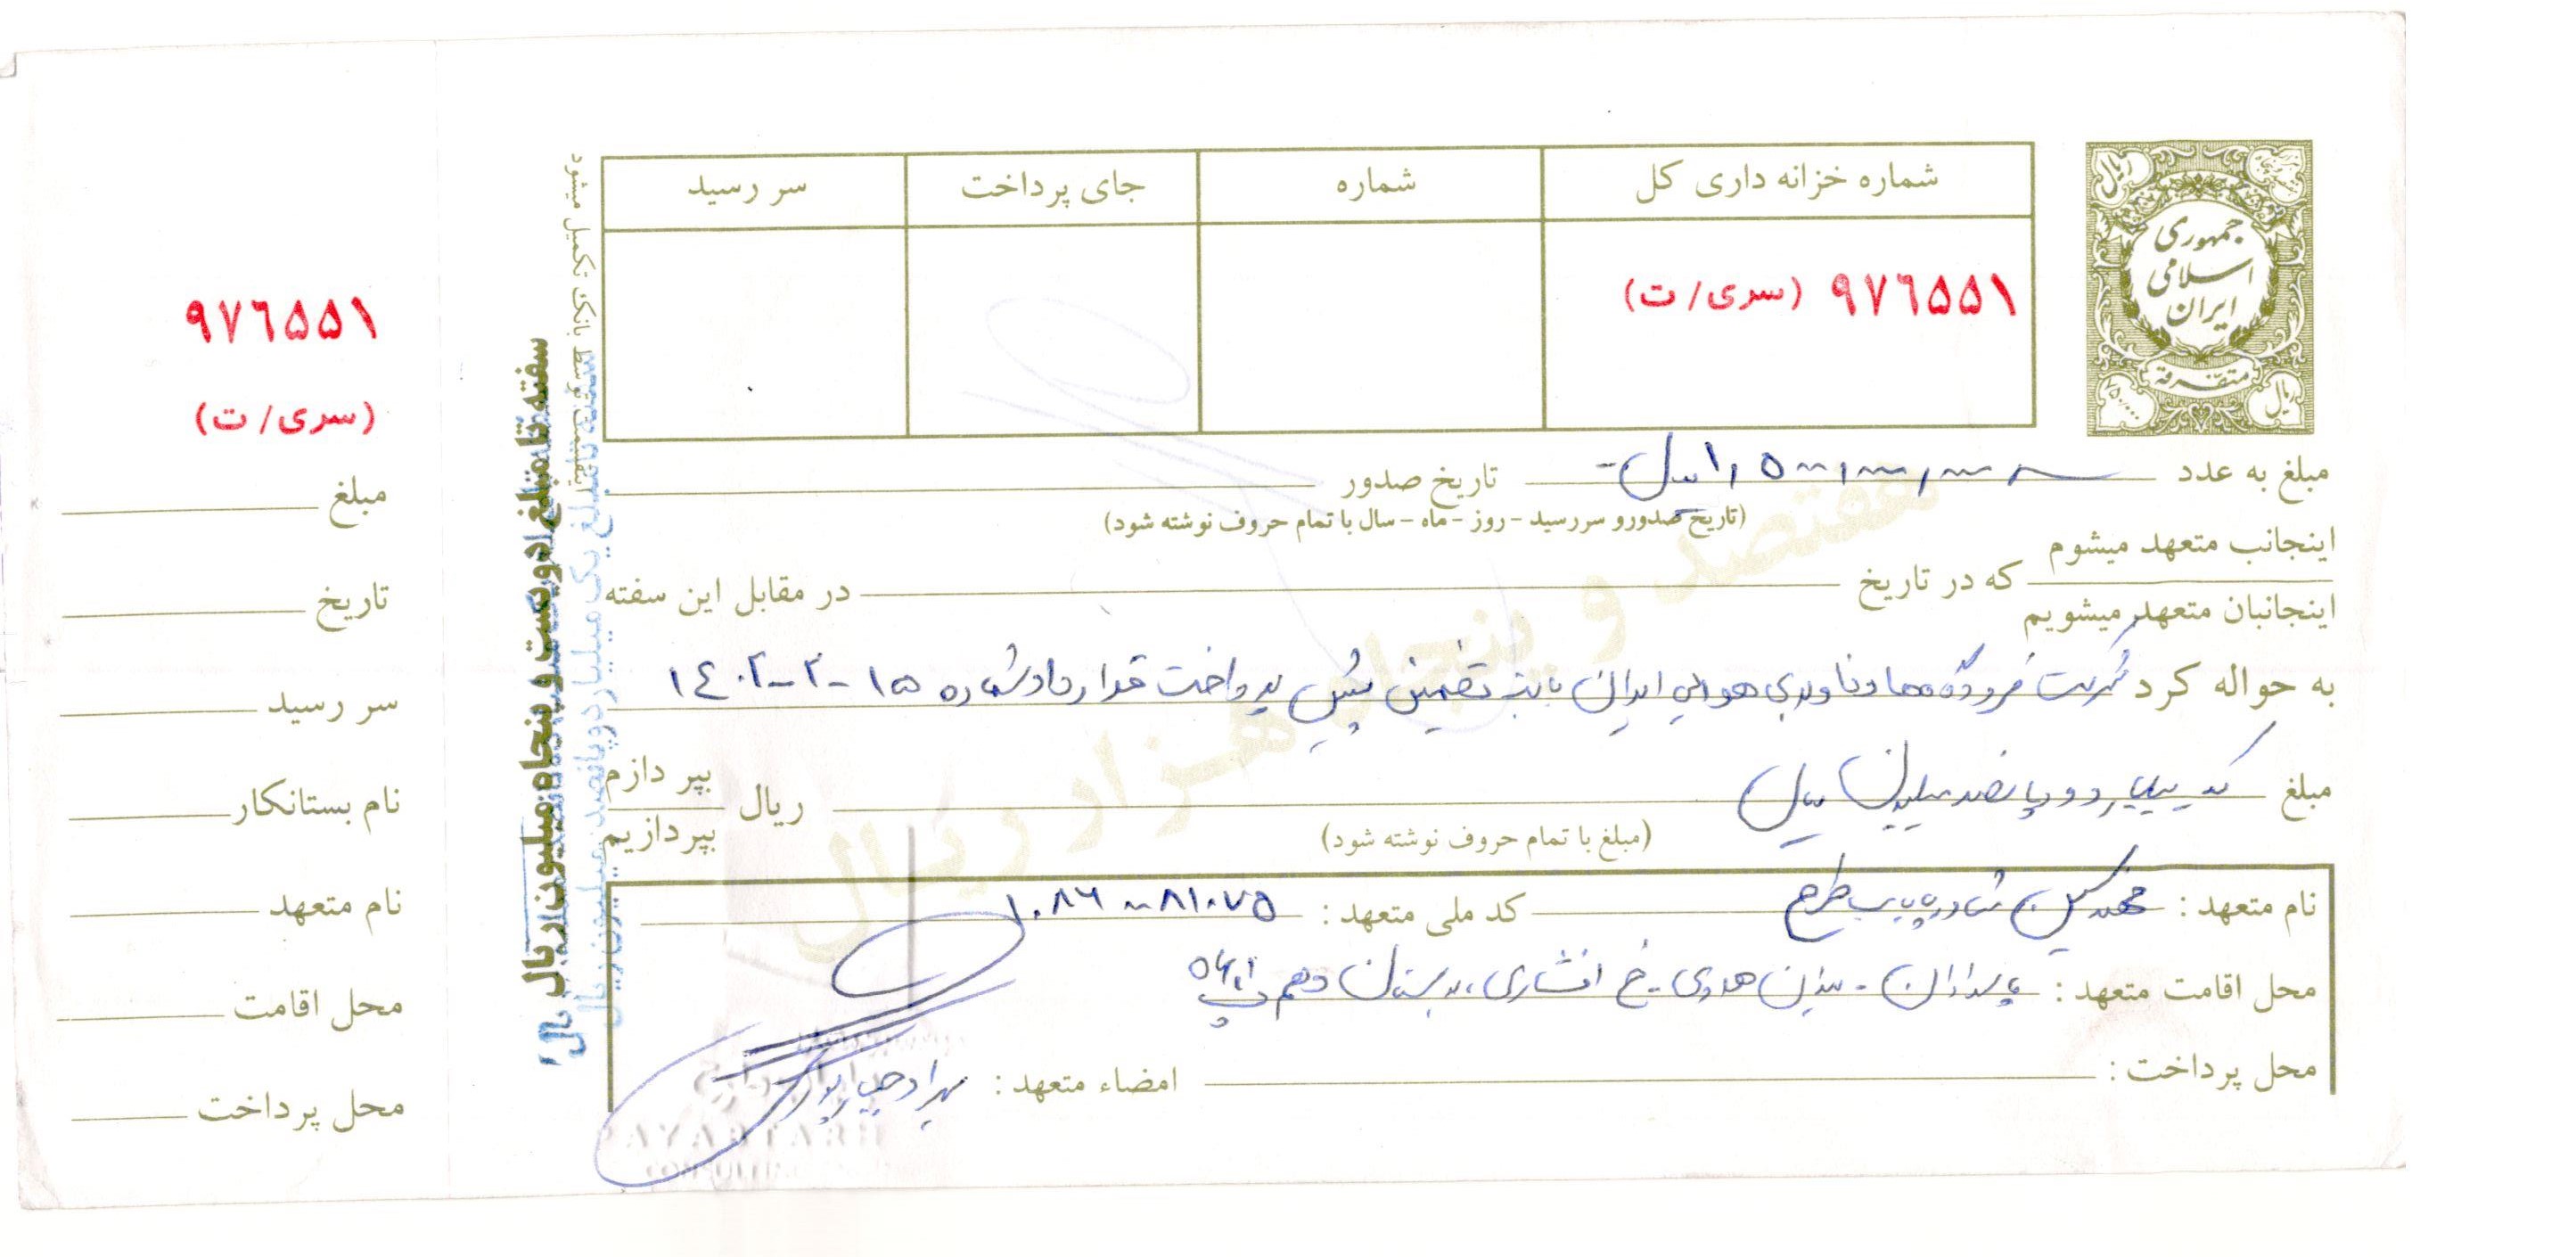 جمهوری
اسلامی
ایران
متفرقه
ریال
ریال
شماره خزانه داری کل
شماره
جای پرداخت
سر رسید
۹۷٦۵۵۱ (سری/ ت)
بقیمت توسط بانک تکمیل میشود
سفته تا مبلغ دویست و پنجاه میلیون ریال
سفته تا مبلغ یک میلیارد و پانصد میلیون ریال
هفتصد و پنجاه هزار ریال
مبلغ به عدد ۱٫۵۰۰٫۰۰۰٫۰۰۰ ریال - تاریخ صدور
(تاریخ صدورو سررسید - روز - ماه - سال با تمام حروف نوشته شود)
اینجانب متعهد میشوم
اینجانبان متعهد میشویم
که در تاریخ در مقابل این سفته
به حواله کرد شرکت فرودگاهها و ناوبری هوایی ایران بابت تضمین پیش پرداخت قرارداد شماره ۱۵-۲-۱۴۰۲
مبلغ یک میلیارد و پانصد میلیون ریال ریال
بپر دازم
بپردازیم
(مبلغ با تمام حروف نوشته شود)
نام متعهد : مهندسین مشاور پایاب طرح کد ملی متعهد : ۱۰۸۶۰۰۸۱۰۷۵
محل اقامت متعهد : پاسداران - میدان هروی - خ افشاری،
محل پرداخت :
امضاء متعهد :
PAYABTARH
۹۷٦۵۵۱
(سری/ ت)
مبلغ
تاریخ
سر رسید
نام بستانکار
نام متعهد
محل اقامت
محل پرداخت